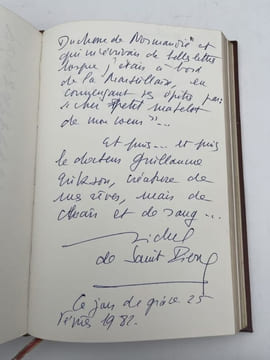 Duchesse de Normandie" et
qui m'écrivais de belles lettres
lorsque j'étais à bord
de la Marseillaise, en
commençant tes épîtres par:
"cher petit matelot
de mon coeur"...
et puis... et puis
le docteur Guillaume
Erikson, créature de
mes rêves, mais de
chair et de sang...
Michel
de Saint Pierre
Ce jour de grâce 25
février 1982.